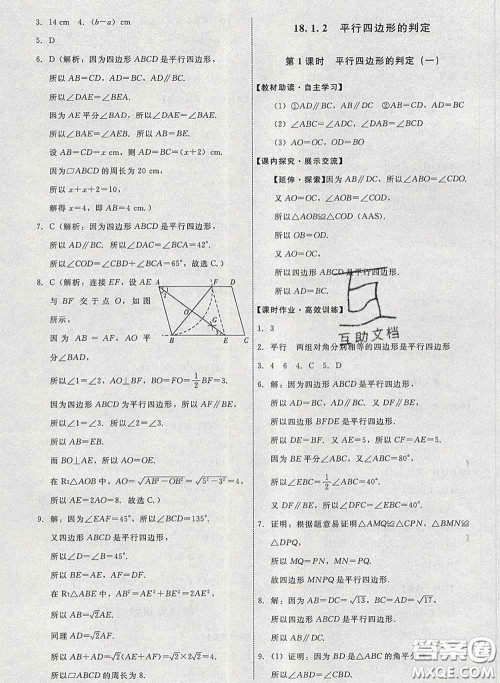 3. 14 cm  4. (b-a) cm
5. D
6. D(解析:因为四边形 ABCD 是平行四边形,
所以 AD∥BC,AD=BC.
所以∠DAE=∠BEA.
因为 AE 平分∠BAD,所以∠BAE=∠DAE.
所以∠BAE=∠BEA. 所以 AB=BE.
设 AB=CD=x cm,则 AD=BC=(x+2) cm.
因为▱ABCD 的周长为 20 cm,
所以 x+x+2=10,
解得 x=4,即 AB=4 cm.)
7. C(解析:因为四边形 ABCD 是平行四边形,
所以 AD∥BF. 所以∠DAC=∠BCA=42°.
所以∠FCA=∠FCB+∠BCA=65°,故选 C.)
8. C(解析:连接 EF,设 AE
与 BF 交于点 O,如图
所示,
因为 AB=AF,AO 平分
∠BAD,
所以∠1=∠2,AO⊥BF,BO=FO=1/2 BF=3.
因为四边形 ABCD 为平行四边形,所以 AF∥BE,
所以∠1=∠3. 所以∠2=∠3.
所以 AB=EB.
而 BO⊥AE,所以 AO=OE.
在 Rt△AOB 中,AO=√(AB²-OB²)=√(5²-3²)=4,
所以 AE=2AO=8. 故选 C.)
9. 解:因为∠EAF=45°,所以∠C=135°.
又四边形 ABCD 是平行四边形,
所以∠B=∠D=45°.
所以 BE=AE,AF=DF.
在 Rt△ABE 中,AE=BE,
所以 AB=√2AE.
同理 AD=√2AF.
所以 AB+AD=√2(AE+AF)=√2×2√2=4.
所以▱ABCD 的周长为 8.
18.1.2 平行四边形的判定
第 1 课时 平行四边形的判定(一)
【教材助读·自主学习】
(1) ①AD∥BC ②AD=BC
(2) ①AB∥DC ②AB=DC
(3) AO=OC, OB=OD
【课内探究·展示交流】
【延伸·探索】因为 AD∥BC,
又 AO=OC,
所以△AOD≌△COB (AAS).
所以 OB=OD.
又 AO=OC,
所以四边形 ABCD 是平行四边形.
所以 AD=BC.
【课时作业·高效训练】
1. 3
2. 平行 两组对角分别相等的四边形是平行四边形
3. 4  6  4. C  5. D
6. 解:因为四边形 ABCD 是平行四边形,
所以四边形 BFDE 是平行四边形.
所以 DE=BF. 又 DE=5,所以 CF=AE=5.
因为∠C=90°,
所以∠EBC=1/2∠ABC=60°.
7. 证明:根据题意易证明△AMQ≌△CPN,
△BMN≌△DPQ.
所以 MN=PQ,MQ=PN.
故四边形 MNPQ 是平行四边形.
8. 解:因为 AD=BC=√13,AB=DC=√17,
所以四边形 ABCD 是平行四边形.
所以 AB∥DC.
9. (1) 证明:因为 BD 是△ABC 的角平分
所以∠ABD=∠DBE.
互助文档
答案圈
MXQE.COM